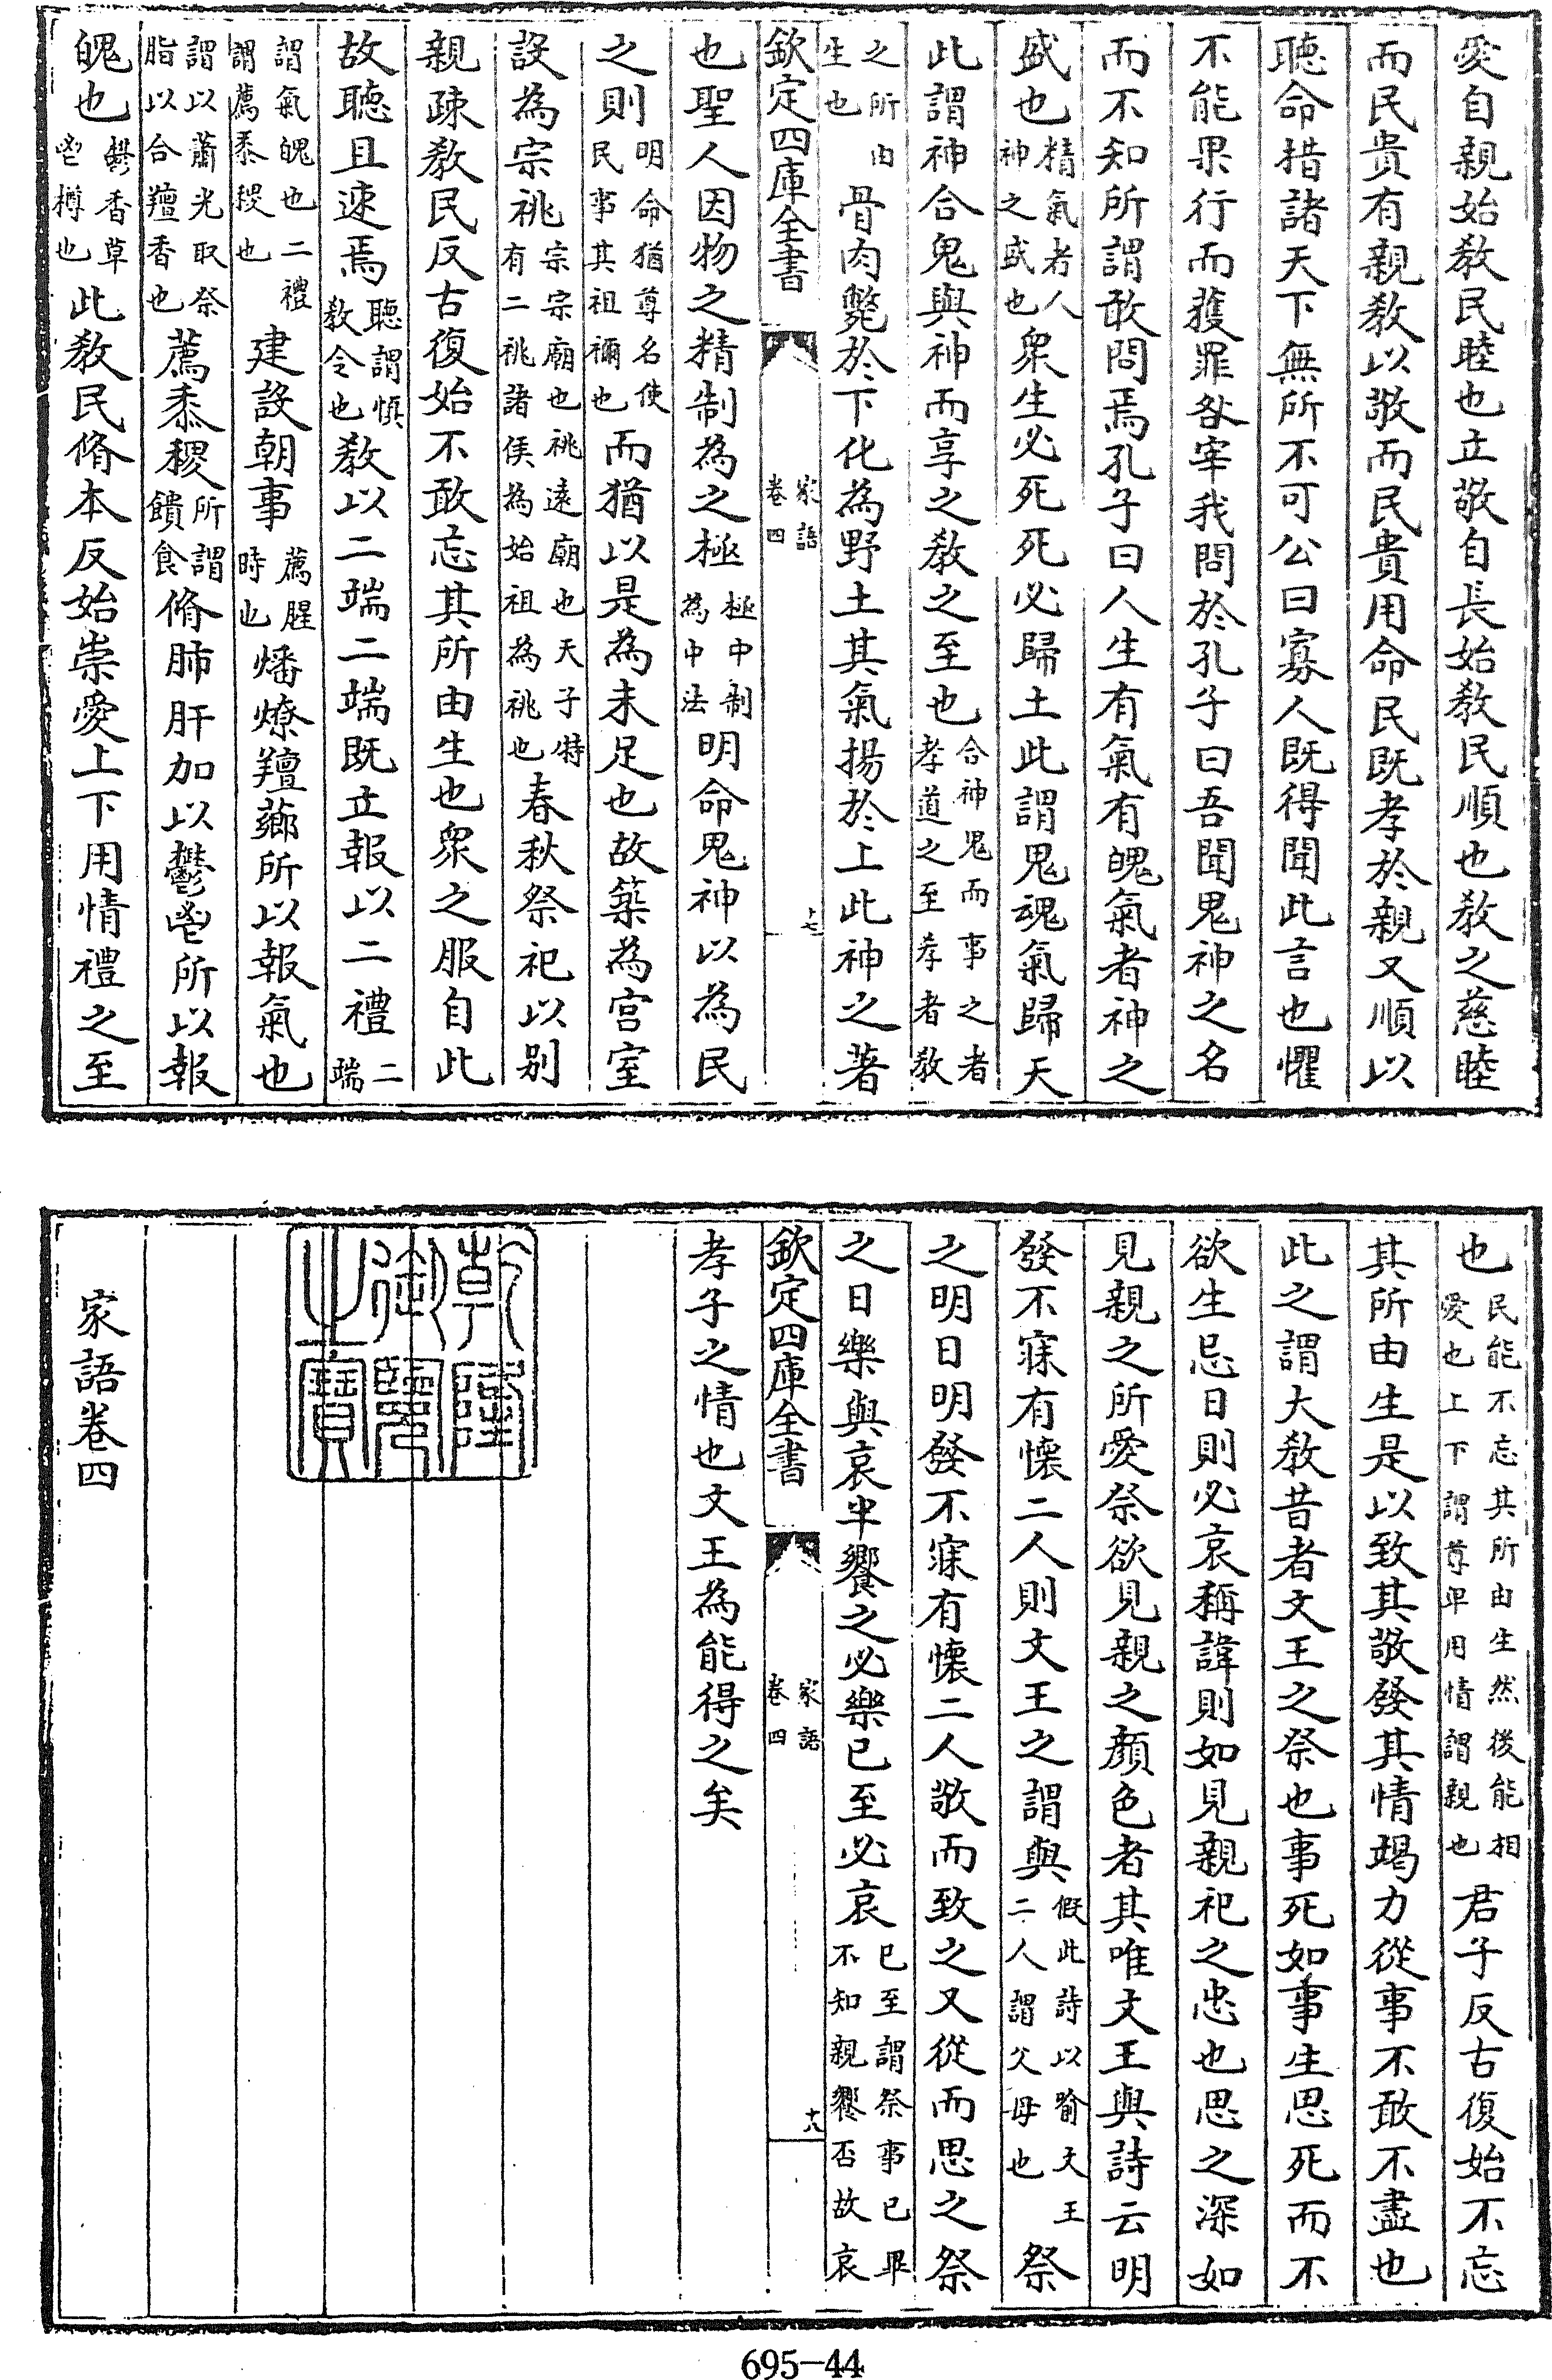 愛自親始教民睦也立敬自長始教民順也教之慈睦
而民貴有親教以敬而民貴用命民既孝於親又順以
聽命措諸天下無所不可公曰寡人既得聞此言也懼
不能果行而獲罪咎宰我問於孔子曰吾聞鬼神之名
而不知所謂敢問焉孔子曰人生有氣有魄氣者神之
盛也精氣者人神之盛也衆生必死死必歸土此謂鬼魂氣歸天
此謂神合鬼與神而享之教之至也合神鬼而事之者孝道之至孝者教
之所由生也骨肉斃於下化為野土其氣揚於上此神之著
欽定四庫全書 家語卷四 十七
也聖人因物之精制為之極極中制為中法明命鬼神以為民
之則明命猶尊名使民事其祖禰也而猶以是為未足也故築為宫室
設為宗祧宗宗廟也祧遠廟也天子特有二祧諸侯為始祖為祧也春秋祭祀以别
親疎教民反古復始不敢忘其所由生也衆之服自此
故聽且速焉聽謂慎教令也教以二端二端既立報以二禮二端
謂氣魄也二禮謂薦黍稷也建設朝事薦腥時也燔燎羶薌所以報氣也
謂以蕭光取祭脂以合羶香也薦黍稷所謂饋食脩肺肝加以鬱鬯所以報
魄也鬱香草鬯樽也此教民脩本反始崇愛上下用情禮之至
也民能不忘其所由生然後能相愛也上下謂尊卑用情謂親也君子反古復始不忘
其所由生是以致其敬發其情竭力從事不敢不盡也
此之謂大教昔者文王之祭也事死如事生思死而不
欲生忌日則必哀稱諱則如見親祀之忠也思之深如
見親之所愛祭欲見親之顔色者其唯文王與詩云明
發不寐有懷二人則文王之謂與假此詩以喻文王二人謂父母也祭
之明日明發不寐有懷二人敬而致之又從而思之祭
之日樂與哀半饗之必樂已至必哀已至謂祭事已畢不知親饗否故哀
欽定四庫全書 家語卷四 十八
孝子之情也文王為能得之矣
乾隆御覽之寶
家語卷四
695-44